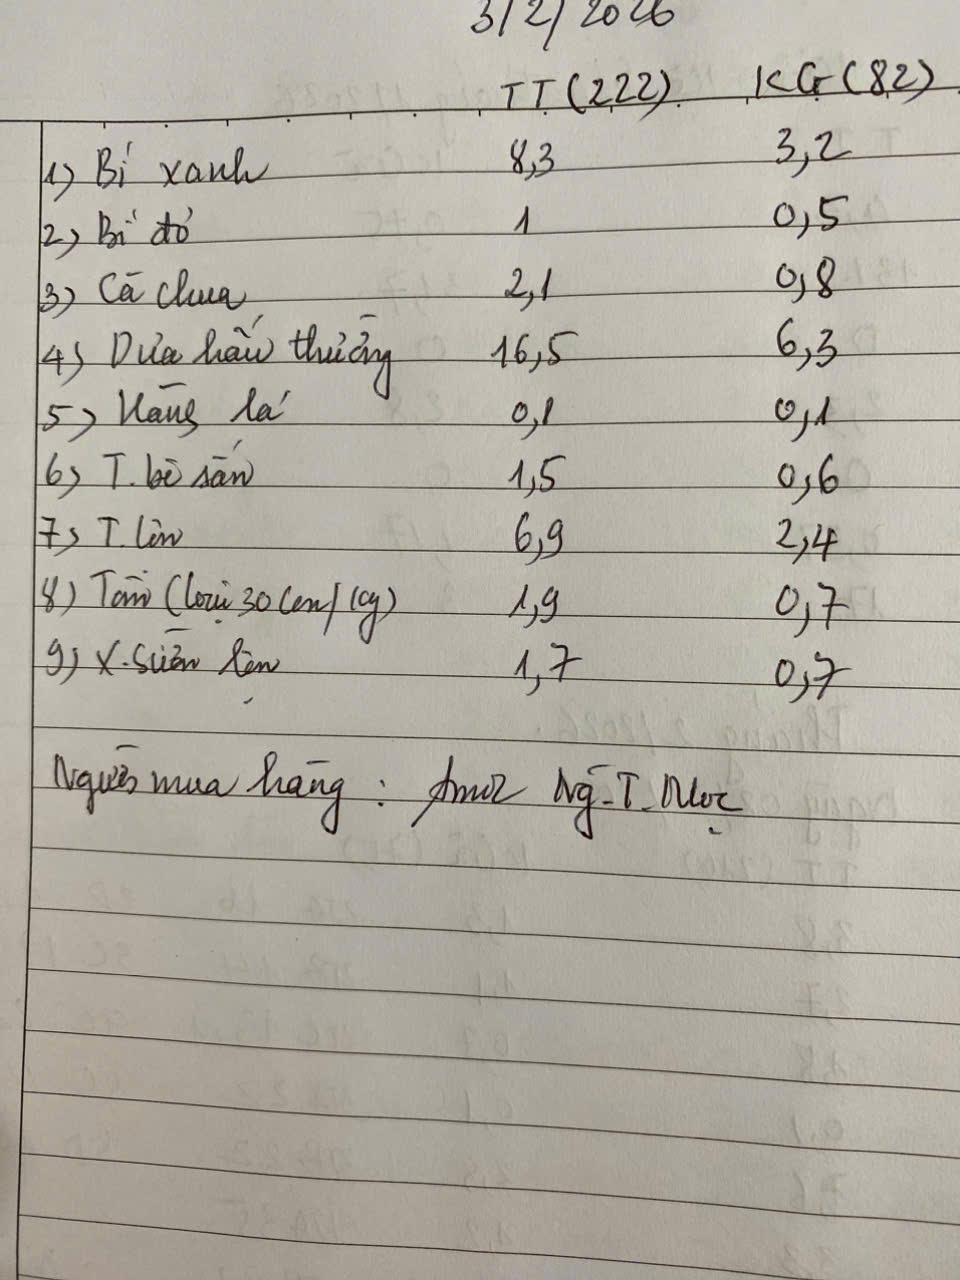 3/2/2026
TT (222) KG (82)
1) Bí xanh 8,3 3,2
2) Bí đỏ 1 0,5
3) Cà chua 2,1 0,8
4) Dưa hấu thường 16,5 6,3
5) Hàng lá 0,1 0,1
6) T. bò sắn 1,5 0,6
7) T. lợn 6,9 2,4
8) Tôm (loại 30 con/kg) 1,9 0,7
9) X. sườn lợn 1,7 0,7
Người mua hàng : Ng-T-